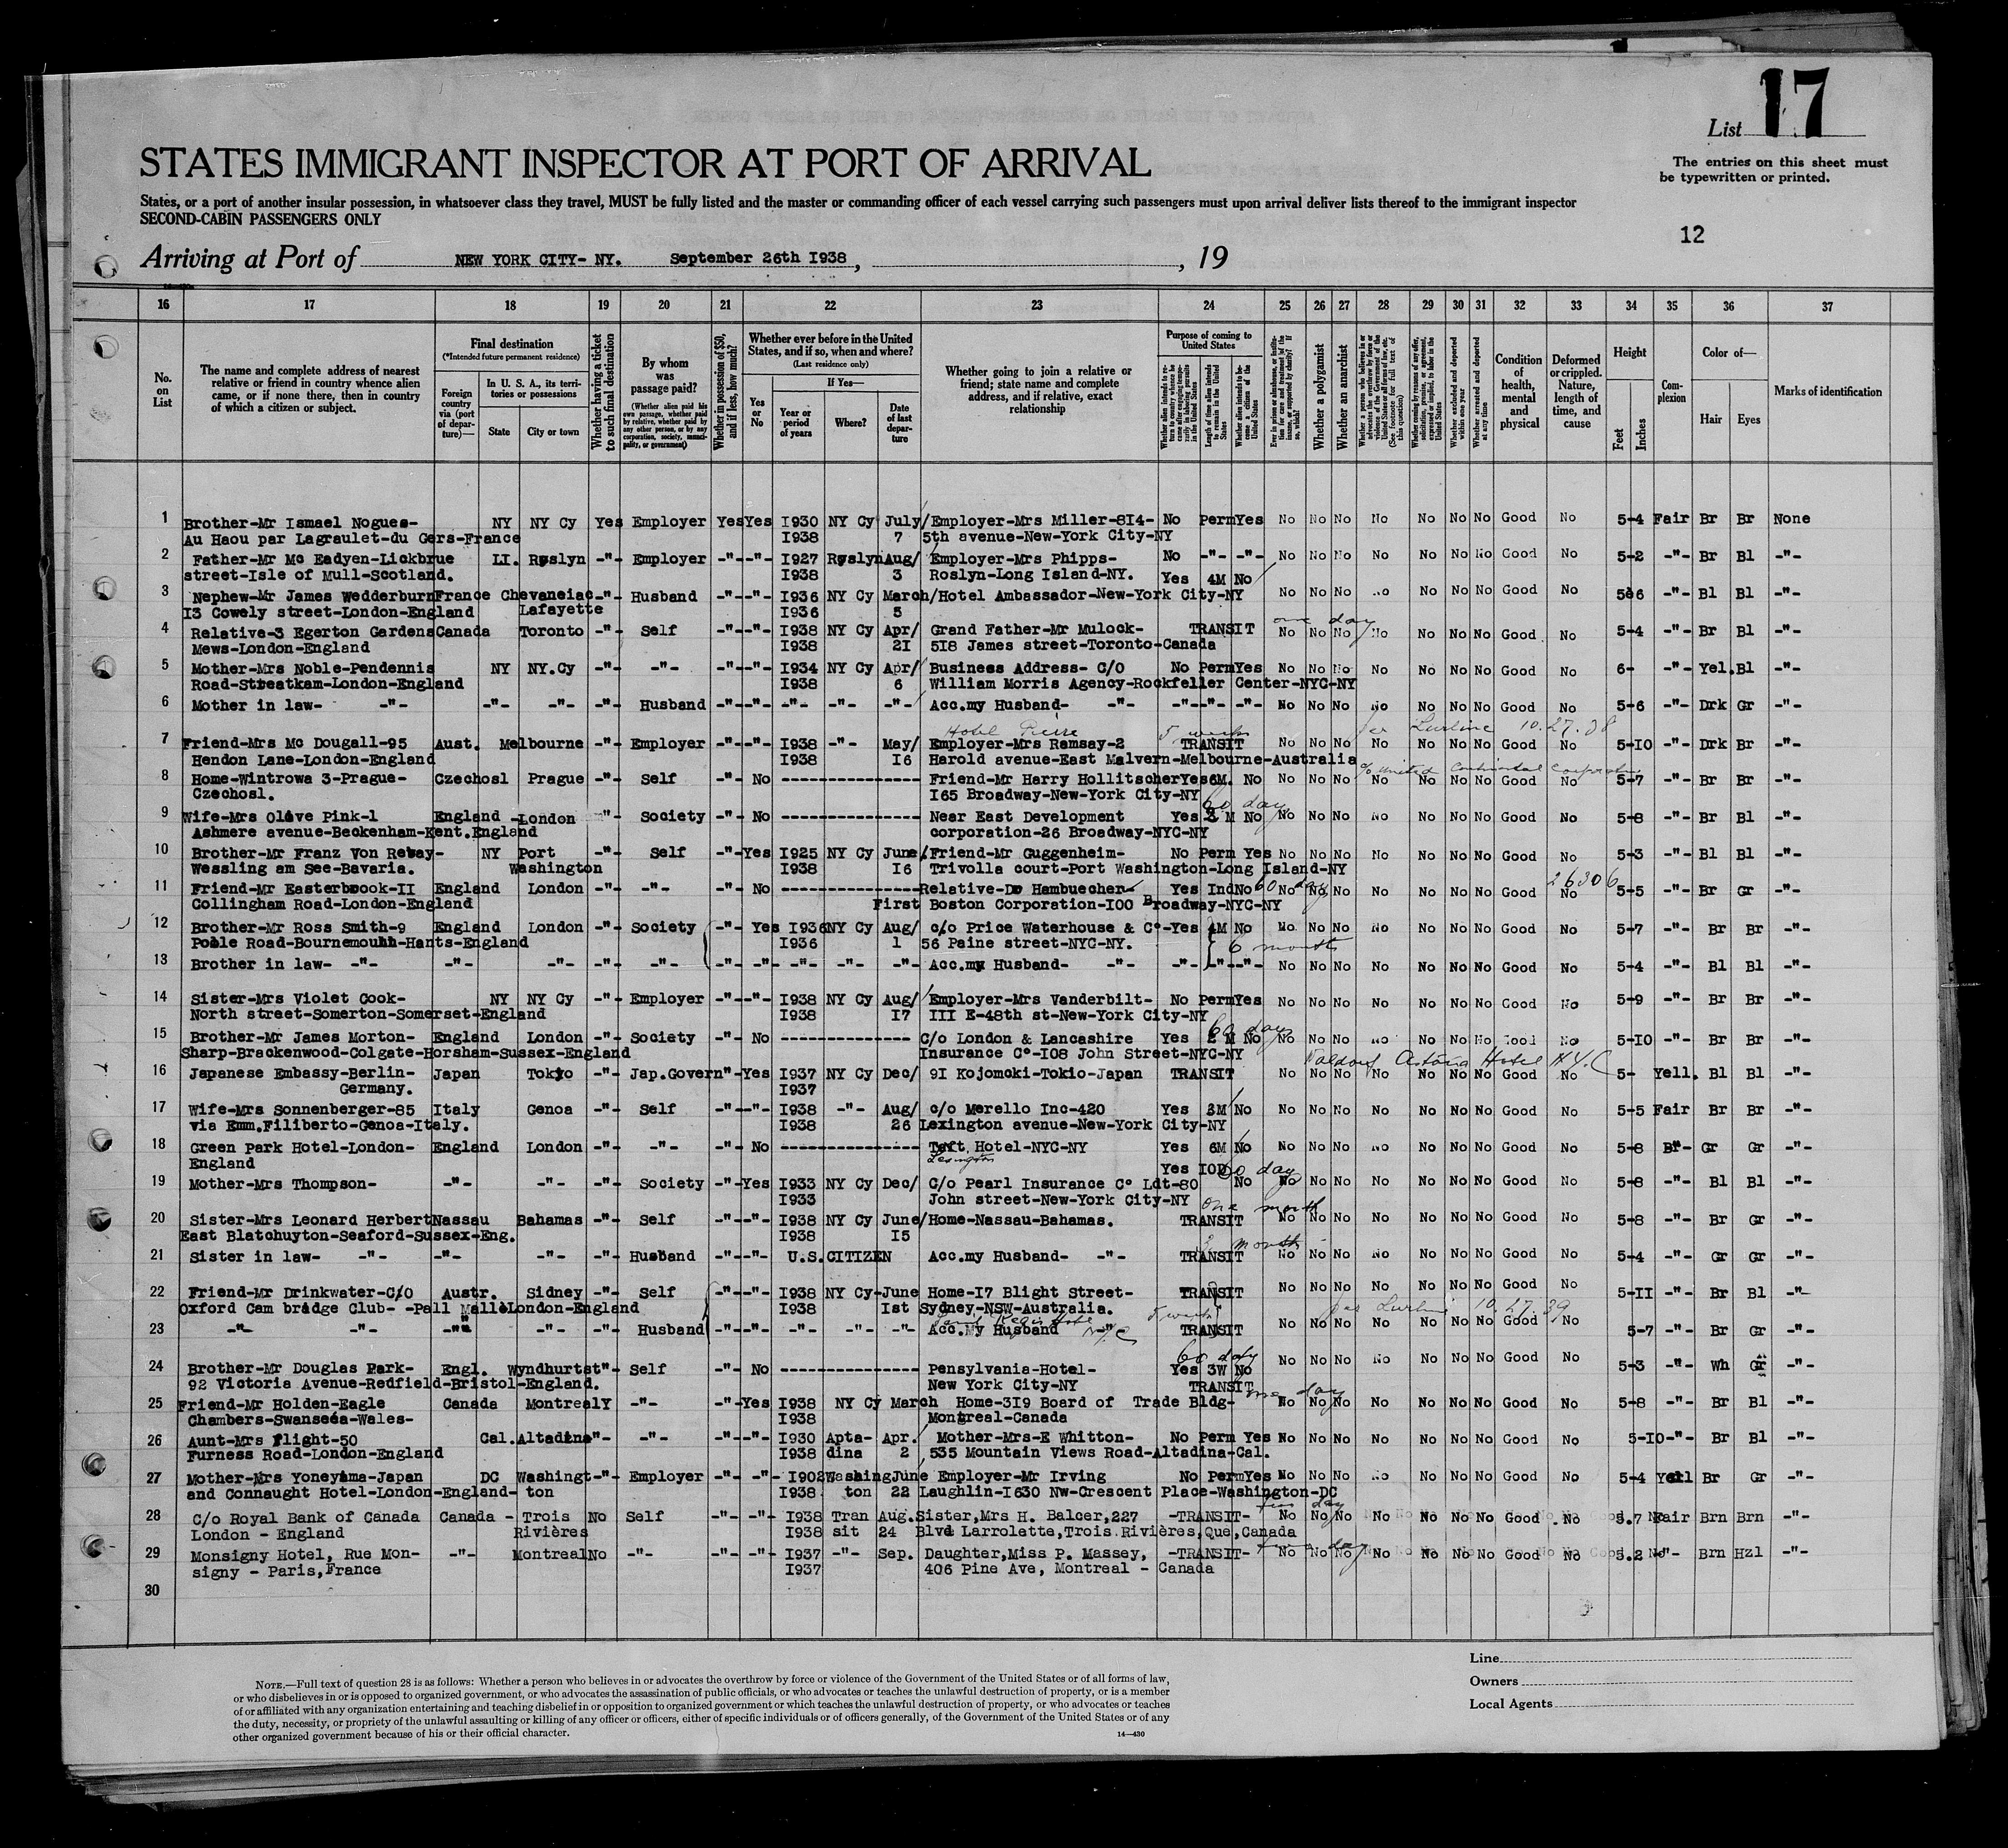 List 17
The entries on this sheet must
be typewritten or printed.
STATES IMMIGRANT INSPECTOR AT PORT OF ARRIVAL
States, or a port of another insular possession, in whatsoever class they travel, MUST be fully listed and the master or commanding officer of each vessel carrying such passengers must upon arrival deliver lists thereof to the immigrant inspector
SECOND-CABIN PASSENGERS ONLY
12
Arriving at Port of NEW YORK CITY- NY. September 26th 1938, , 19
16 17 18 19 20 21 22 23 24 25 26 27 28 29 30 31 32 33 34 35 36 37
No. on List
The name and complete address of nearest relative or friend in country whence alien came, or if none there, then in country of which a citizen or subject.
Final destination
(*Intended future permanent residence)
Foreign country via (port of departure)—
In U. S. A., its territories or possessions
State City or town
Whether having a ticket to such final destination
By whom was passage paid?
(Whether alien paid his own passage, whether paid by relative, whether paid by any other person, or by any corporation, society, municipality, or government)
Whether in possession of $50, and if less, how much?
Whether ever before in the United States, and if so, when and where?
(Last residence only)
Yes or No
If Yes—
Year or period of years
Where?
Date of last departure
Whether going to join a relative or friend; state name and complete address, and if relative, exact relationship
Purpose of coming to United States
Length of time alien intends to remain in the United States
Whether alien intends to become a citizen of the United States
Whether a polygamist
Whether an anarchist
Condition of health, mental and physical
Deformed or crippled. Nature, length of time, and cause
Height
Feet Inches
Complexion
Color of—
Hair Eyes
Marks of identification
1 Brother-Mr Ismael Nogues- NY NY Cy Yes Employer Yes Yes 1930 NY Cy July/ Employer-Mrs Miller-814- No Perm Yes No No No No No No No Good No 5-4 Fair Br Br None
Au Haou par Lagraulet-du Gers-France 1938 7 5th avenue-New-York City-NY
2 Father-Mr Mc Eadyen-Lickbrue LI. Roslyn -"- Employer -"- -"- 1927 Roslyn Aug/ Employer-Mrs Phipps- No -"- -"- No No No No No No No Good No 5-2 -"- Br Bl -"-
street-Isle of Mull-Scotland. 1938 3 Roslyn-Long Island-NY. Yes 4M No
3 Nephew-Mr James Wedderburn France Chevaneiac -"- Husband -"- -"- 1936 NY Cy March/ Hotel Ambassador-New-York City-NY No No No No No No No Good No 5-6 -"- Bl Bl -"-
13 Cowely street-London-England Lafayette 1936 5
one day
4 Relative-3 Egerton Gardens Canada Toronto -"- Self -"- -"- 1938 NY Cy Apr/ Grand Father-Mr Mulock- TRANSIT No No No No No No No Good No 5-4 -"- Br Bl -"-
Mews-London-England 1938 21 518 James street-Toronto-Canada
5 Mother-Mrs Noble-Pendennis NY NY.Cy -"- -"- -"- -"- 1934 NY Cy Apr/ Business Address- C/O No Perm Yes No No No No No No No Good No 6- -"- Yel. Bl -"-
Road-Streatkam-London-England 1938 6 William Morris Agency-Rockfeller Center-NYC-NY
6 Mother in law- -"- -"- -"- -"- Husband -"- -"- -"- -"- -"- Acc.my Husband- -"- -"- -"- -"- No No No No No No No Good No 5-6 -"- Drk Gr -"-
Hotel Pierre 5 weeks per Lurline 10.27.38
7 Friend-Mrs Mc Dougall-95 Aust. Melbourne -"- Employer -"- -"- 1938 -"- May/ Employer-Mrs Ramsay-2 TRANSIT No No No No No No No Good No 5-10 -"- Drk Br -"-
Hendon Lane-London-England 1938 16 Harold avenue-East Malvern-Melbourne-Australia
c/o United Continental Corporation
8 Home-Wintrowa 3-Prague- Czechosl Prague -"- Self -"- No Friend-Mr Harry Hollitscher Yes 6M. No No No No No No No No Good No 5-7 -"- Br Br -"-
Czechosl. 165 Broadway-New-York City-NY
60 day
9 Wife-Mrs Olive Pink-1 England -London -"- Society -"- No Near East Development Yes 2 M No No No No No No No No Good No 5-8 -"- Br Bl -"-
Ashmere avenue-Beckenham-Kent.England corporation-26 Broadway-NYC-NY
10 Brother-Mr Franz Von Rebay- NY Port -"- Self -"- Yes 1925 NY Cy June/ Friend-Mr Guggenheim- No Perm Yes No No No No No No No Good No 5-3 -"- Bl Bl -"-
Wessling am See-Bavaria. Washington 1938 16 Trivolla court-Port Washington-Long Island-NY
26306
11 Friend-Mr Easterbrook-11 England London -"- -"- -"- No Relative-Dr Hambuecher Yes Ind No 60 day No No No No No No No Good No 5-5 -"- Br Gr -"-
Collingham Road-London-England First Boston Corporation-100 Broadway-NYC-NY
12 Brother-Mr Ross Smith-9 England London -"- Society -"- Yes 1936 NY Cy Aug/ c/o Price Waterhouse & C°- Yes 4M No No No No No No No No Good No 5-7 -"- Br Br -"-
Poole Road-Bournemouth-Hants-England 1936 1 56 Paine street-NYC-NY. 6 months
13 Brother in law- -"- -"- -"- -"- -"- -"- -"- -"- -"- -"- Acc.my Husband- -"- -"- -"- -"- No No No No No No No Good No 5-4 -"- Bl Bl -"-
14 Sister-Mrs Violet Cook- NY NY Cy -"- Employer -"- -"- 1938 NY Cy Aug/ Employer-Mrs Vanderbilt- No Perm Yes No No No No No No No Good No 5-9 -"- Br Br -"-
North street-Somerton-Somerset-England 1938 17 111 E-48th st-New-York City-NY
60 day
15 Brother-Mr James Morton- England London -"- Society -"- No C/o London & Lancashire Yes 2 M No No No No No No No No Good No 5-10 -"- Br Br -"-
Sharp-Brackenwood-Colgate-Horsham-Sussex-England Insurance C°-108 John Street-NYC-NY
Waldorf Astoria Hotel N.Y.C
16 Japanese Embassy-Berlin- Japan Tokyo -"- Jap.Govern -"- Yes 1937 NY Cy Dec/ 91 Kojomoki-Tokio-Japan TRANSIT No No No No No No No Good No 5- Yell. Bl Bl -"-
Germany. 1937
17 Wife-Mrs Sonnenberger-85 Italy Genoa -"- Self -"- -"- 1938 -"- Aug/ c/o Merello Inc-420 Yes 3M No No No No No No No No Good No 5-5 Fair Br Br -"-
via Emm.Filiberto-Genoa-Italy. 1938 26 Lexington avenue-New-York City-NY
18 Green Park Hotel-London- England London -"- -"- -"- No Taft Hotel-NYC-NY Yes 6M No No No No No No No No Good No 5-8 Br- Gr Gr -"-
England Lexington
Yes 10D 60 day
19 Mother-Mrs Thompson- -"- -"- -"- Society -"- Yes 1933 NY Cy Dec/ C/o Pearl Insurance C° Ldt-80 No No No No No No No No Good No 5-8 -"- Bl Bl -"-
1933 John street-New-York City-NY
one month
20 Sister-Mrs Leonard Herbert Nassau Bahamas -"- Self -"- -"- 1938 NY Cy June/ Home-Nassau-Bahamas. TRANSIT No No No No No No No Good No 5-8 -"- Br Gr -"-
East Blatchuyton-Seaford-Sussex-Eng. 1938 15
month
21 Sister in law- -"- -"- -"- -"- Husband -"- -"- U.S.CITIZEN Acc.my Husband- -"- TRANSIT No No No No No No No Good No 5-4 -"- Gr Gr -"-
22 Friend-Mr Drinkwater-C/O Austr. Sidney -"- Self -"- -"- 1938 NY Cy-June Home-17 Blight Street- TRANSIT No No No No No No No Good No 5-11 -"- Br Bl -"-
Oxford Cam bridge Club- -Pall Mall-London-England 1938 1st Sydney-NSW-Australia. Lurline 10.27.39
Regis Hotel NYC 5 weeks
23 -"- -"- -"- -"- -"- Husband -"- -"- -"- -"- -"- Acc.My Husband -"- TRANSIT No No No No No No No Good No 5-7 -"- Br Gr -"-
60 day
24 Brother-Mr Douglas Park- Engl. Wyndhurtst -"- Self -"- No Pensylvania-Hotel- Yes 3W No No No No No No No No Good No 5-3 -"- Wh Gr -"-
92 Victoria Avenue-Redfield-Bristol-England. New York City-NY
TRANSIT one day
25 Friend-Mr Holden-Eagle Canada Montrealy -"- -"- Yes 1938 NY Cy March Home-319 Board of Trade Bldg- No No No No No No No Good No 5-8 -"- Br Bl -"-
Chambers-Swansea-Wales- 1938 Montreal-Canada
26 Aunt-Mrs Flight-50 Cal. Altadina -"- -"- -"- -"- 1930 Apta- Apr. Mother-Mrs-E Whitton- No Perm Yes No No No No No No No Good No 5-10 -"- Br Bl -"-
Furness Road-London-England 1938 dina 2 535 Mountain Views Road-Altadina-Cal.
27 Mother-Mrs Yoneyama-Japan DC Washingt -"- Employer -"- -"- 1902 Washing June Employer-Mr Irving No Perm Yes No No No No No No No Good No 5-4 Yell Br Gr -"-
and Connaught Hotel-London-England- ton 1938 ton 22 Laughlin-1630 Nw-Crescent Place-Washington-DC
28 C/o Royal Bank of Canada Canada - Trois No Self -"- -"- 1938 Tran Aug. Sister,Mrs H. Balcer,227 -TRANSIT- No No No No No No No Good No 5.7 Fair Brn Brn -"-
London - England Rivières 1938 sit 24 Blvd Larrolette,Trois Rivières,Que,Canada
29 Monsigny Hotel, Rue Mon- -"- Montreal No -"- -"- -"- 1937 -"- Sep. Daughter,Miss P. Massey, -TRANSIT- No No No No No No No Good No 5.2 -"- Brn Hzl -"-
signy - Paris,France 1937 406 Pine Ave, Montreal - Canada
30
Line
Owners
Local Agents
NOTE.—Full text of question 28 is as follows: Whether a person who believes in or advocates the overthrow by force or violence of the Government of the United States or of all forms of law,
or who disbelieves in or is opposed to organized government, or who advocates the assassination of public officials, or who advocates or teaches the unlawful destruction of property, or is a member
of or affiliated with any organization entertaining and teaching disbelief in or opposition to organized government or which teaches the unlawful destruction of property, or who advocates or teaches
the duty, necessity, or propriety of the unlawful assaulting or killing of any officer or officers, either of specific individuals or of officers generally, of the Government of the United States or of any
other organized government because of his or their official character.
14—430